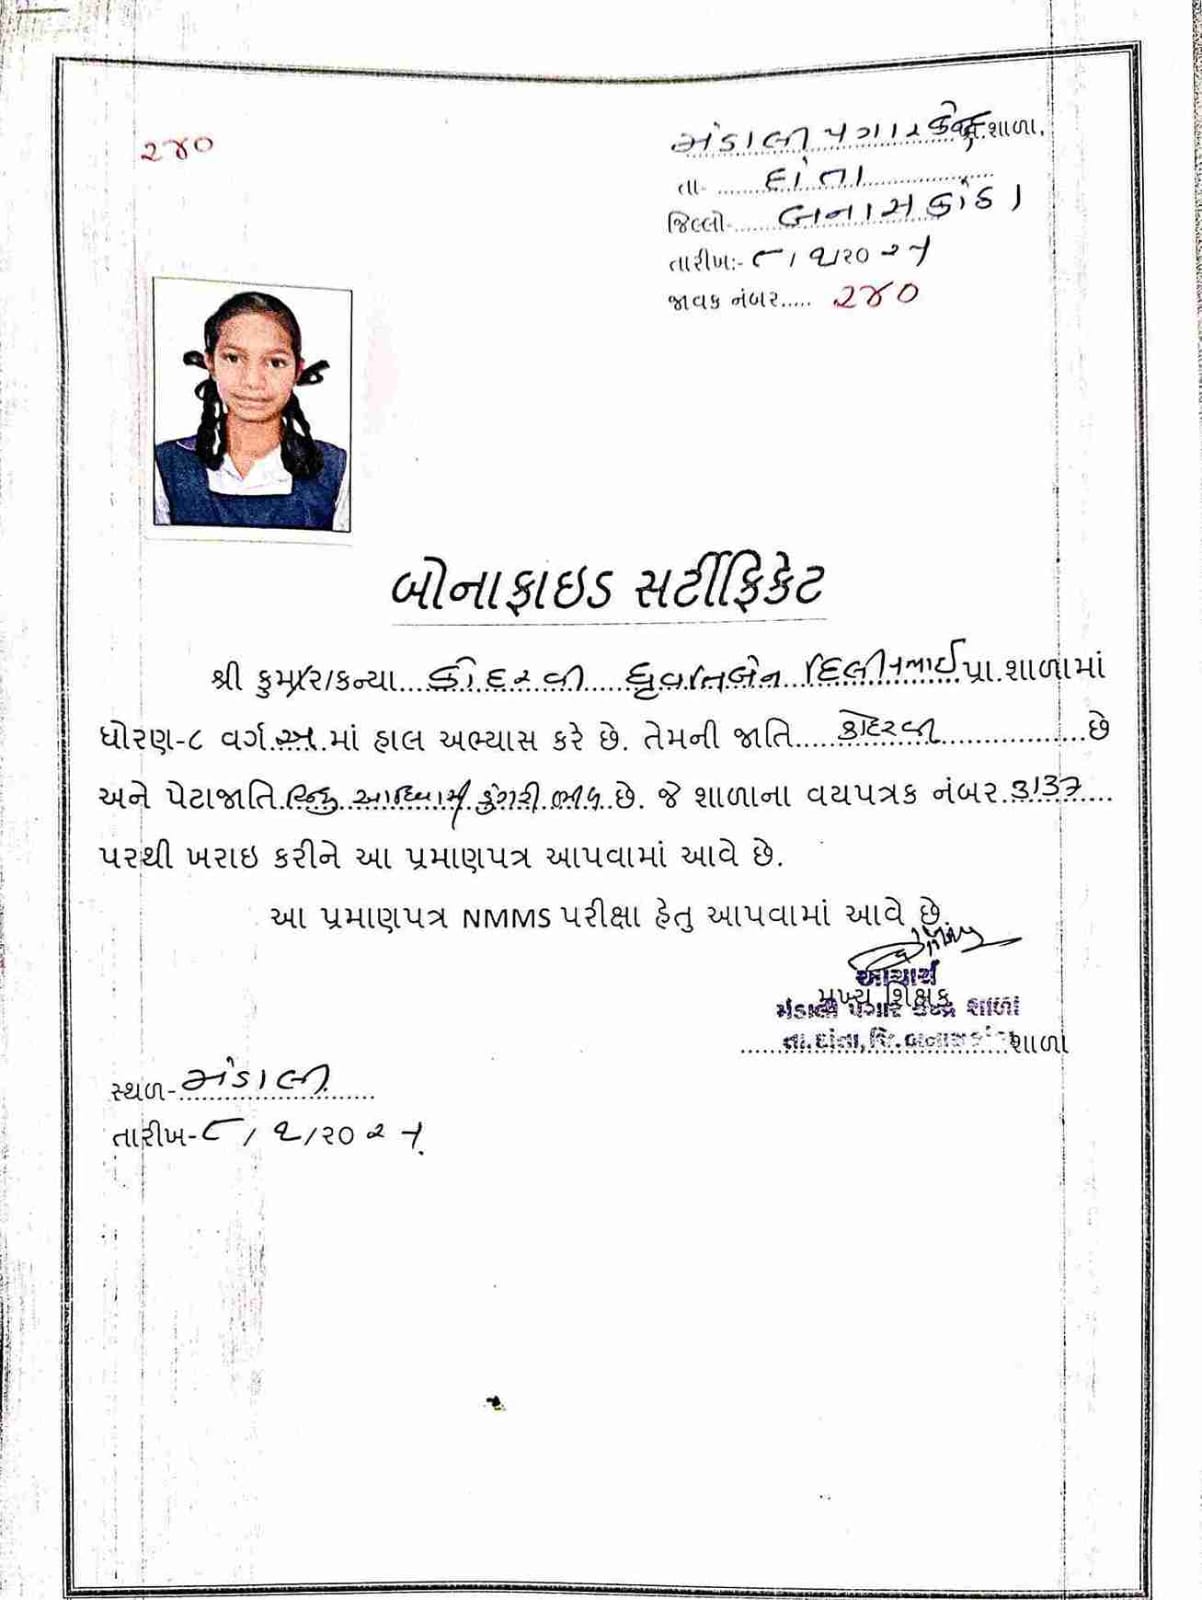 ૨૪૦
મંડાલી પગાર કેન્દ્ર શાળા.
તા- દાંતા
જિલ્લો- બનાસકાંઠા
તારીખ:- ૮ / ૧/૨૦૨૫
જાવક નંબર..... ૨૪૦
બોનાફાઇડ સર્ટીફિકેટ
શ્રી કુમાર/કન્યા કોદરવી ધ્રુવાતિબેન દિલીપભાઈ પ્રા.શાળામાં
ધોરણ-૮ વર્ગ અ માં હાલ અભ્યાસ કરે છે. તેમની જાતિ કોદરવી છે
અને પેટાજાતિ હિન્દુ આદિવાસી ડુંગરી ભીલ છે. જે શાળાના વયપત્રક નંબર ૩૧૩૭
પરથી ખરાઇ કરીને આ પ્રમાણપત્ર આપવામાં આવે છે.
આ પ્રમાણપત્ર NMMS પરીક્ષા હેતુ આપવામાં આવે છે.
આચાર્ય
મુખ્ય શિક્ષક
મંડાલી પગાર કેન્દ્ર શાળા
તા.દાંતા, જિ.બનાસકાંઠા શાળા
સ્થળ- મંડાલી
તારીખ- ૮ / ૧/૨૦૨૫